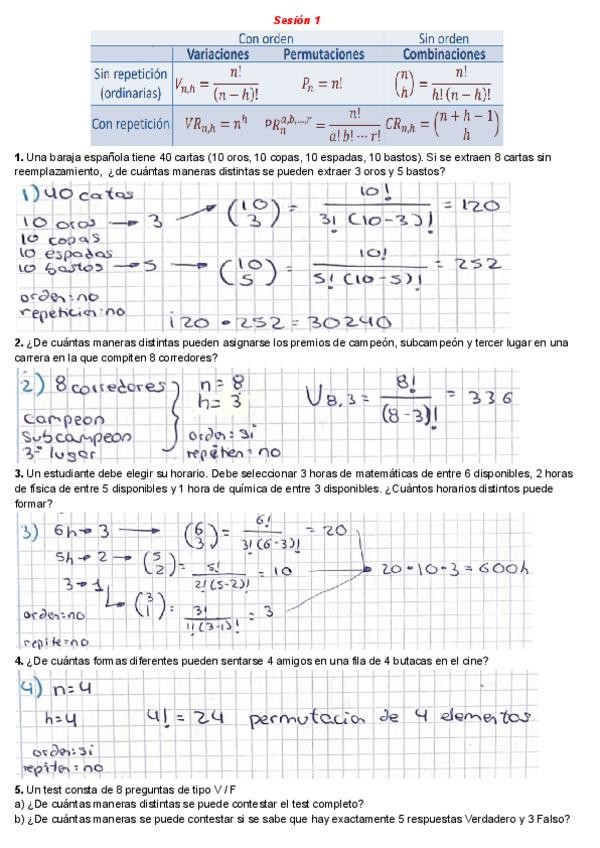 Sesión 1
Con orden Sin orden
Variaciones Permutaciones Combinaciones
Sin repetición (ordinarias) V_{n,h} = n! / (n − h)! P_n = n! (n h) = n! / h! (n − h)!
Con repetición VR_{n,h} = n^h PR_n^{a,b,...,r} = n! / a! b! ⋯ r! CR_{n,h} = (n + h − 1 h)
1. Una baraja española tiene 40 cartas (10 oros, 10 copas, 10 espadas, 10 bastos). Si se extraen 8 cartas sin
reemplazamiento, ¿de cuántas maneras distintas se pueden extraer 3 oros y 5 bastos?
1) 40 catas
10 oros → 3 → (10 3) = 10! / 3! (10-3)! = 120
10 copas
10 espadas
10 bastos → 5 → (10 5) = 10! / 5! (10-5)! = 252
orden: no
repeticion: no
120 • 252 = 30240
2. ¿De cuántas maneras distintas pueden asignarse los premios de campeón, subcampeón y tercer lugar en una
carrera en la que compiten 8 corredores?
2) 8 corredores n = 8 V8,3 = 8! / (8-3)! = 336
h = 3
campeon
subcampeon orden: si
3er lugar repiten: no
3. Un estudiante debe elegir su horario. Debe seleccionar 3 horas de matemáticas de entre 6 disponibles, 2 horas
de física de entre 5 disponibles y 1 hora de química de entre 3 disponibles. ¿Cuántos horarios distintos puede
formar?
3) 6h → 3 → (6 3) = 6! / 3! (6-3)! = 20
5h → 2 → (5 2) = 5! / 2! (5-2)! = 10 → 20 • 10 • 3 = 600h
3 → 1 → (3 1) = 3! / 1! (3-1)! = 3
orden: no
repite = no
4. ¿De cuántas formas diferentes pueden sentarse 4 amigos en una fila de 4 butacas en el cine?
4) n = 4
h = 4 4! = 24 permutacion de 4 elementos
orden: si
repiten: no
5. Un test consta de 8 preguntas de tipo V / F
a) ¿De cuántas maneras distintas se puede contestar el test completo?
b) ¿De cuántas maneras se puede contestar si se sabe que hay exactamente 5 respuestas Verdadero y 3 Falso?